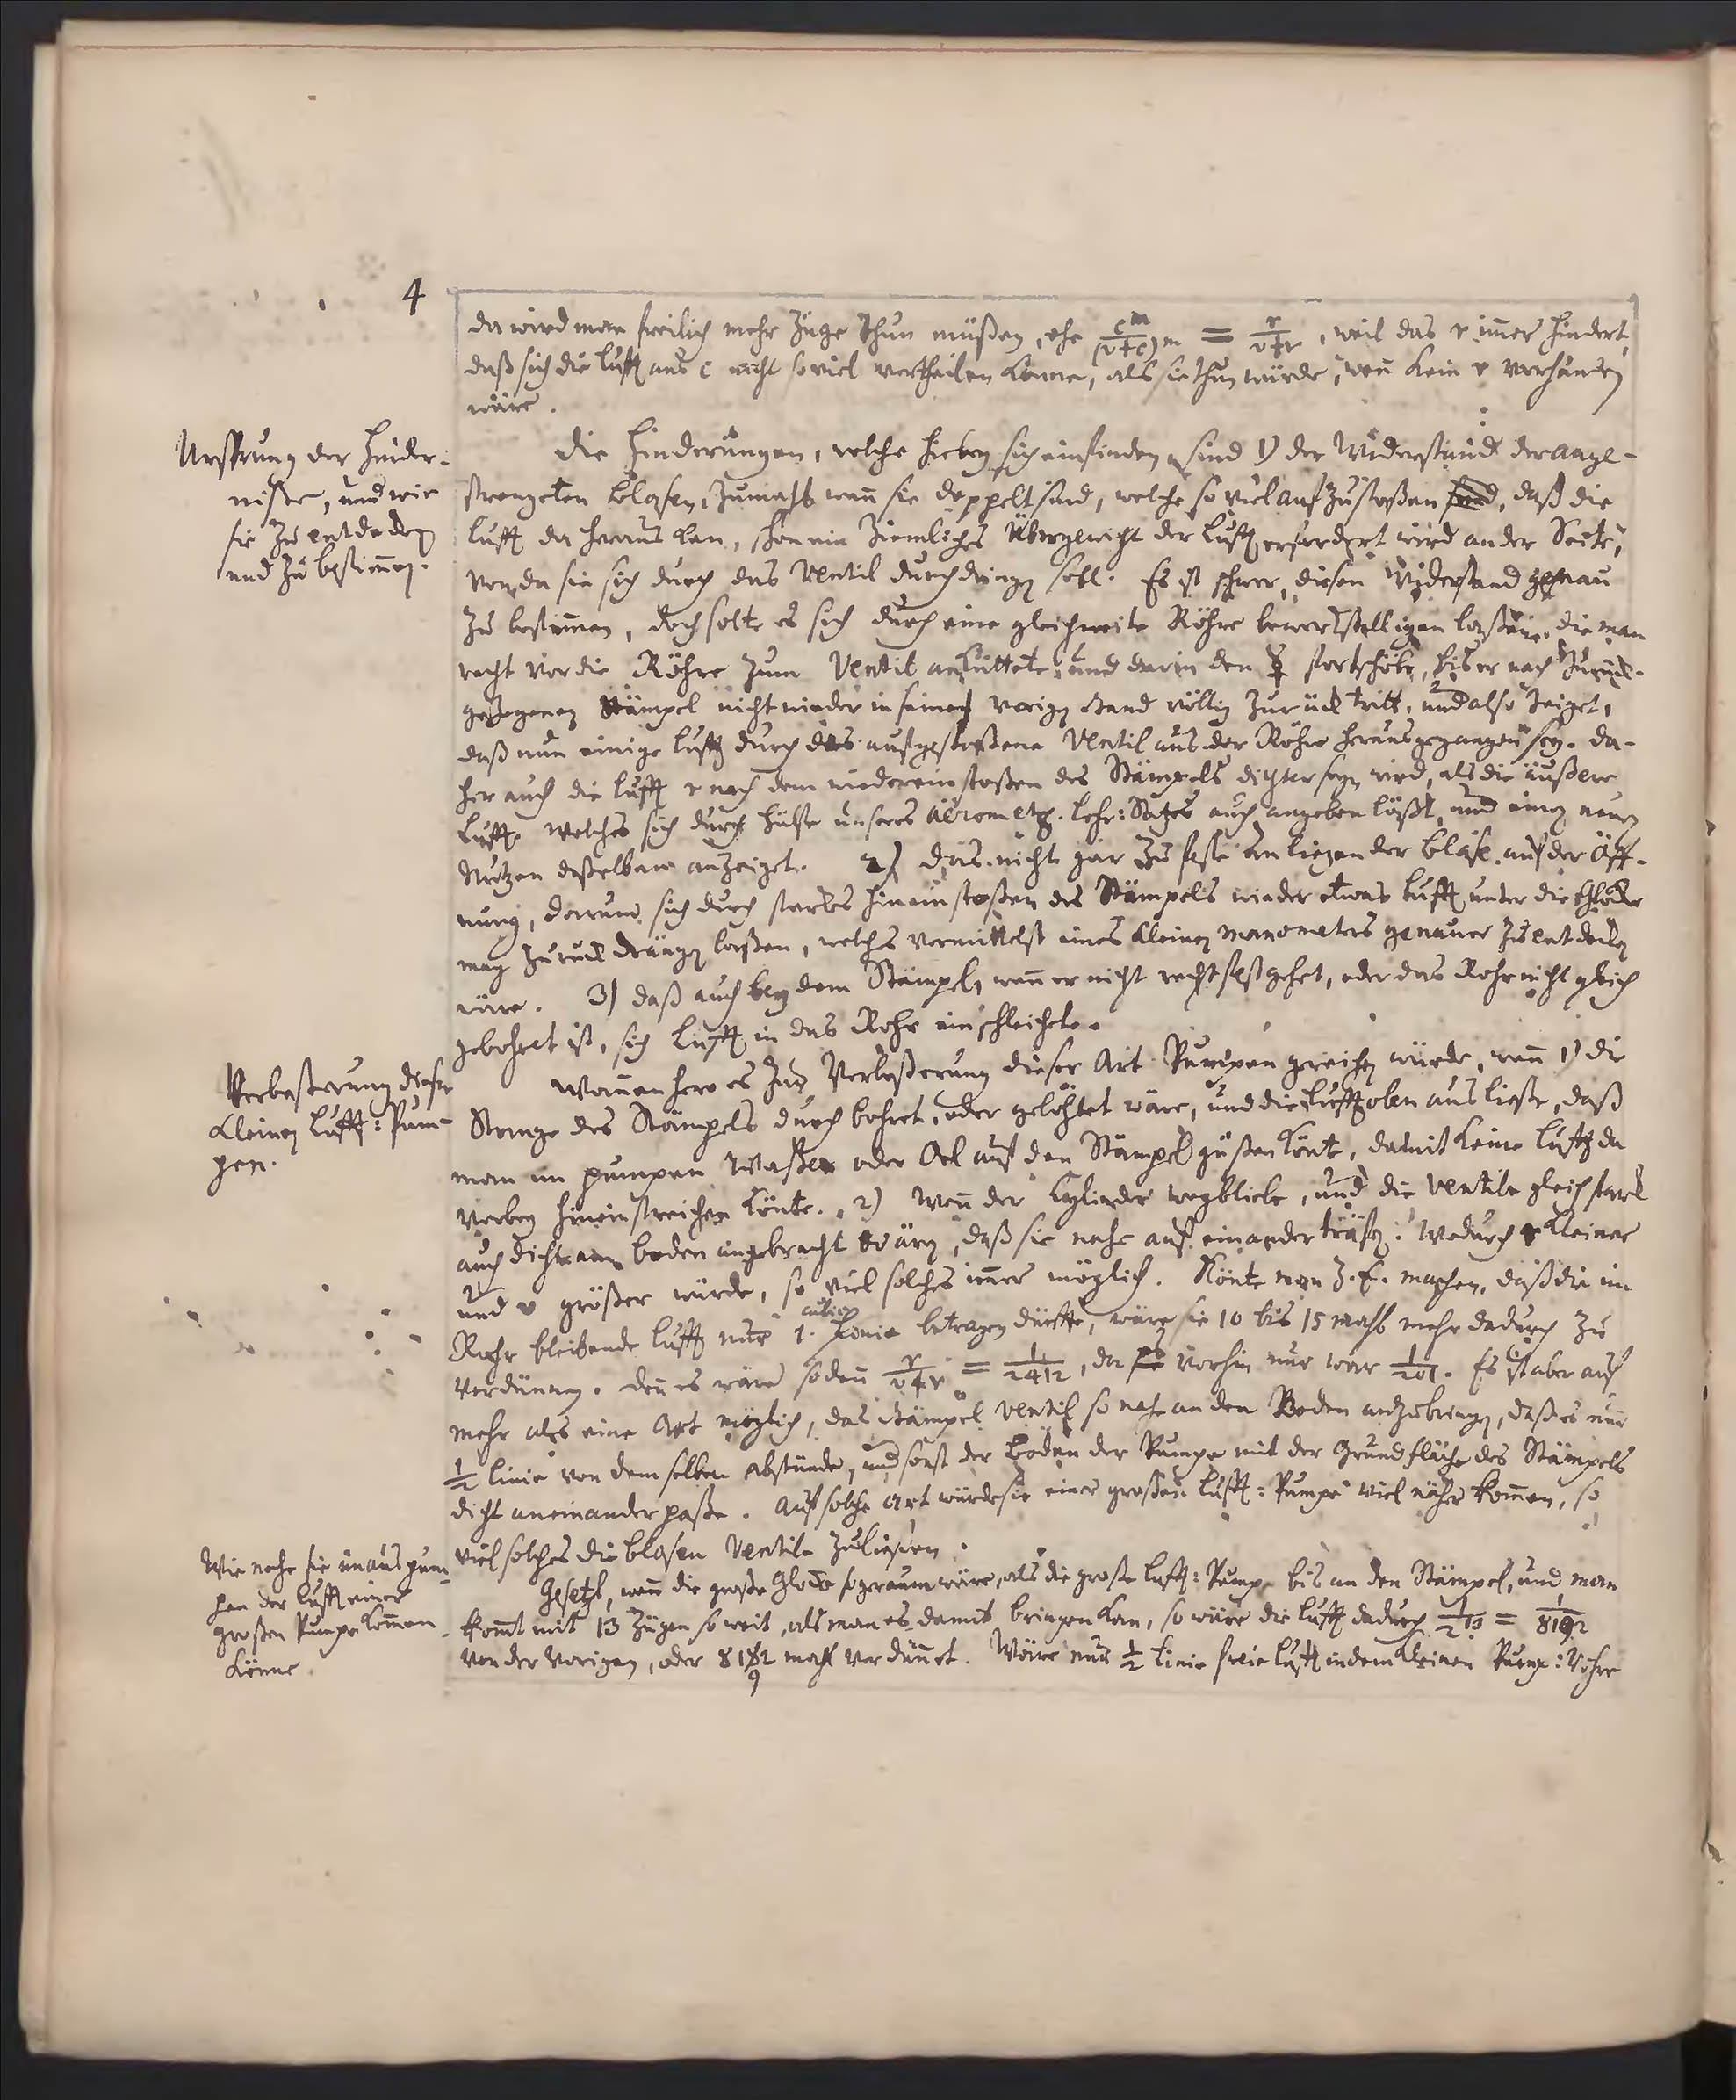 4
da wird man freilich mehr Züge thun müßen, ehe c^m/(v+c)^m = r/v+r, weil das r immer hindert,
daß sich die Lufft aus c nicht so viel vertheilen könne, als sie thun würde, wen kein r verhanden
wäre.
Ursprung der Hinder-
niße, und wie
sie zu entdecken
und zu bestimmen.
Die Hinderungen, welche hiebey sich einfinden, sind 1) der Widerstand der ange-
strengeten Blasen, zumahl wenn sie doppelt sind, welche so viel aufzustoßen sind, daß die
Lufft da heraus kan, schon ein ziemliches Übergewicht der Lufft erfordert wird an der Seite,
von da sie sich durch das Ventil durchdringen soll. Es ist schwer, diesen Widerstand genau
zu bestimmen, doch solte es sich durch eine gleichweite Röhre bewerkstelligen laßen, die man
recht vor die Röhre zum Ventil anküttete, und darin den ☿ fortschöbe, bis er nach zurück-
gezogenen Stämpel nicht wieder in seinen vorigen Stand völlig zurück tritt, und also zeiget,
daß nun einige Lufft durch das aufgestoßene Ventil aus der Röhre herausgegangen sey. Da-
her auch die Lufft r nach dem wiedereinstoßen des Stämpels dichter seyn wird, als die äußere
Lufft, welches sich durch Hülfe unseres aërometr. Lehr-Satzes auch angeben läßt, und einen neuen
Nutzen deßelben anzeiget. 2) das nicht gar zu feste Anliegen der Blase auf der Öff-
nung, darum sich durch starkes Hineinstoßen des Stämpels wieder etwas Lufft unter die Glocke
mag zurück drängen laßen, welches vermittelst eines kleinen manometers genauer zu entdecken
wäre. 3) daß auch bey dem Stämpel, wenn er nicht recht fest gehet, oder das Rohr nicht gleich
gebohret ist, sich Lufft in das Rohr einschleichete.
Verbeßerung dieser
kleinen Lufft-Pum-
pen.
Wannenhero es zur Verbeßerung dieser Art Pumpen gereichen würde, wenn 1) die
Stange des Stämpels durchbohret, oder gelöchtet wäre, und die Lufft oben aus ließe, daß
man im pumpen Waßer oder Oel auf den Stämpel güßen könte, damit keine Lufft da
vorbey hineinstreichen könte. 2) Wenn der Cylinder wegbliebe, und die Ventile gleich stark
auch dicht am boden angebracht wären, daß sie nahe auf einander träfen: wodurch r kleiner
und v größer würde, so viel solches immer möglich. Könte man z. E. machen, daß die im
Rohr bleibende Lufft nur 1. cubic Linie betragen dürffte, wäre sie 10 bis 15 mahl mehr dadurch zu
verdünnen. Den es wäre sodenn r/v+r = 1/2412, da es vorhin nur war 1/201. Es ist aber auf
mehr als eine Art möglich, das Stämpel Ventil so nahe an den Boden anzubringen, daß es nur
1/2 Linie von demselben abstünde, und sonst der Boden der Pumpe mit der Grundfläche des Stämpels
dicht aneinander paße. Auf solche Art würde sie einer großen Lufft-Pumpe viel näher kommen, so
viel solches die blasen Ventile zuließen.
Wie nahe sie im auspum-
pen der Lufft einer
großen Pumpe kommen
könne.
Gesetzt, wenn die große Glocke so geraum wäre, als die große Lufft-Pumpe bis an den Stämpel, und man
kommt mit 13 Zügen so weit, als man es damit bringen kan, so wäre die Lufft dadurch 1/2^13 = 1/8192
von der vorigen, oder 8192 mahl verdünnet. Wäre nur 1/2 Linie freie Lufft in dem kleinen Pump-Rohre